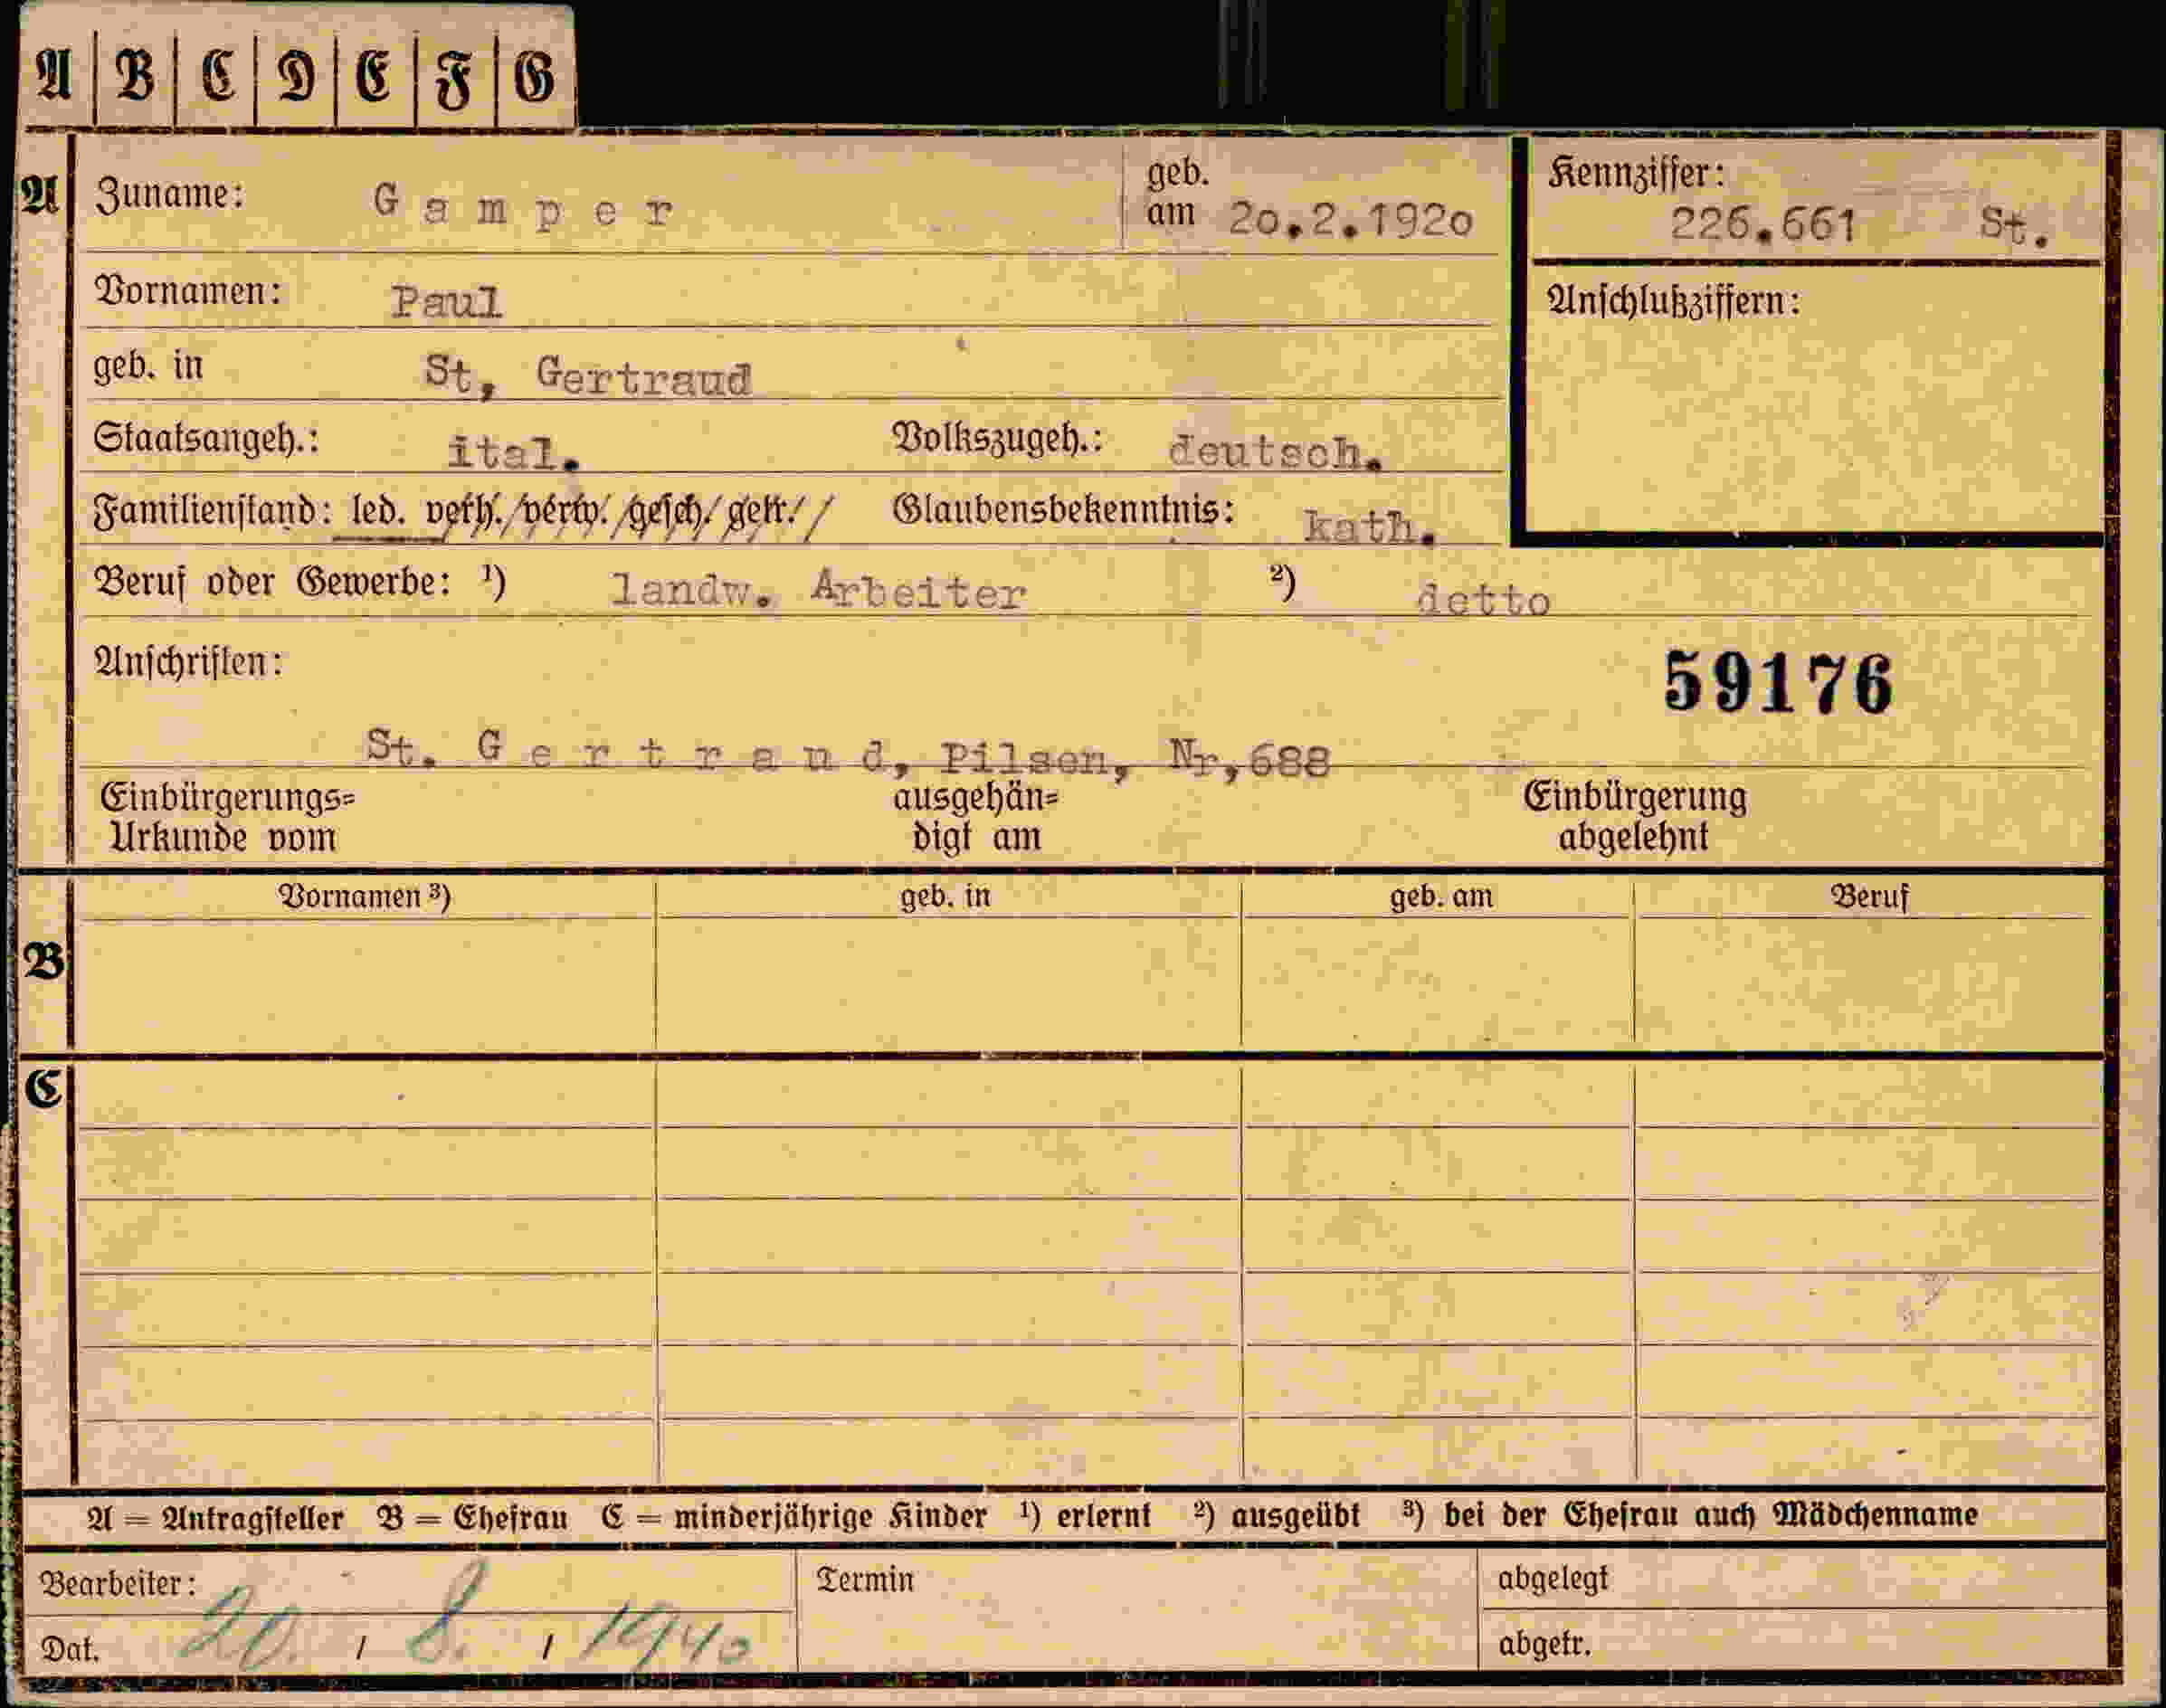 A B C D E F G
A Zuname: Gamper geb. am 2o.2.192o Kennziffer: 226.661 St.
Vornamen: Paul Anschlußziffern:
geb. in St, Gertraud
Staatsangeh.: ital. Volkszugeh.: deutsch.
Familienstand: led. verh./verw./gesch./getr./ Glaubensbekenntnis: kath.
Beruf oder Gewerbe: ¹) landw. Arbeiter ²) detto
Anschriften: 59176
St. Gertraud, Pilsen, Nr,688
Einbürgerungs= ausgehän= Einbürgerung
Urkunde vom digt am abgelehnt
Vornamen ³) geb. in geb. am Beruf
B
C
A = Antragsteller B = Ehefrau C = minderjährige Kinder ¹) erlernt ²) ausgeübt ³) bei der Ehefrau auch Mädchenname
Bearbeiter: Termin abgelegt
Dat. 20. / 8. / 1940 abgetr.